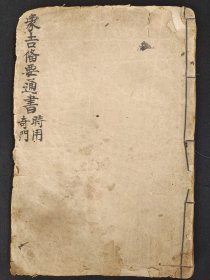 象吉备要通書
時用
奇門